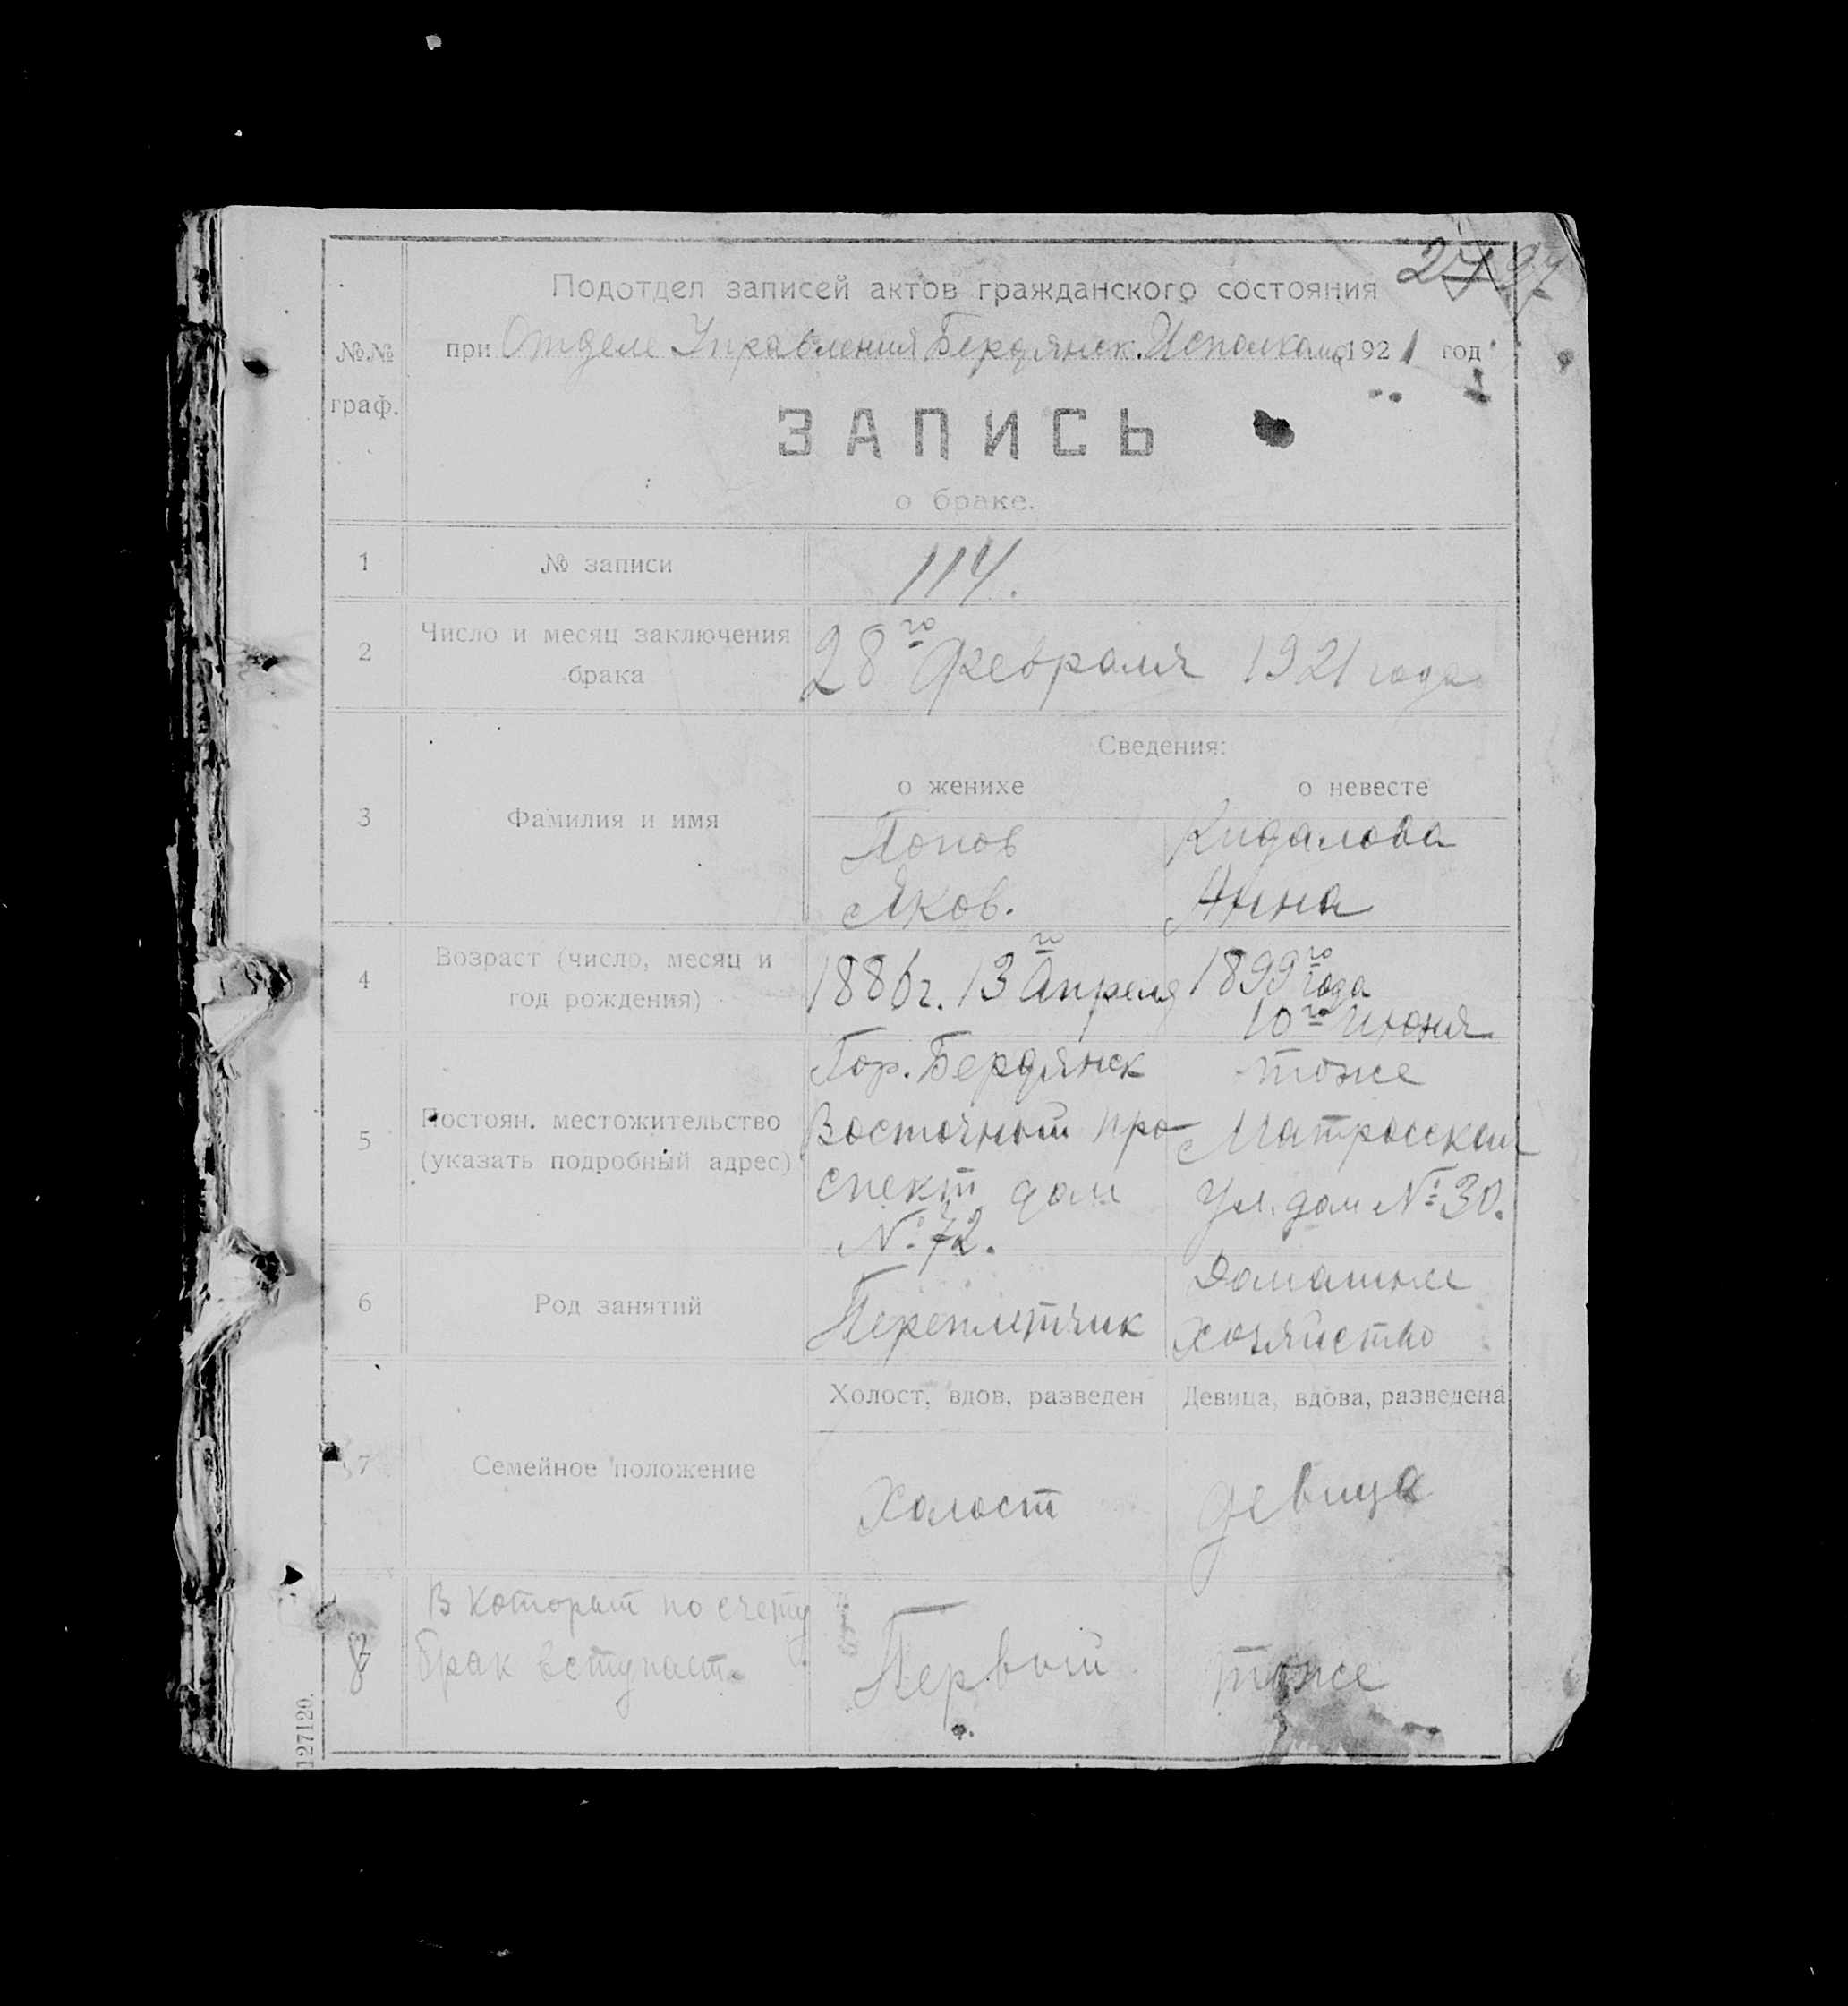 27 97
Подотдел записей актов гражданского состояния
при Отделе Управления Бердянск. Исполкома 1921 год
№№
граф.
ЗАПИСЬ
о браке.
1 № записи 114.
2 Число и месяц заключения
брака
28го Февраля 1921 года
Сведения:
о женихе о невесте
3 Фамилия и имя
Попов Кидалова
Яков. Анна
4 Возраст (число, месяц и
год рождения)
1886г. 13го Апреля 1899го года
10го Июня
5 Постоян. местожительство
(указать подробный адрес)
Гор. Бердянск тоже
Восточный про- Матросская
спект дом ул. дом № 30.
№ 72.
6 Род занятий
Переплетчик Домашнее
хозяйство
Холост, вдов, разведен Девица, вдова, разведена
7 Семейное положение
Холост девица
8 В которыт по счету
брак вступает.
Первый тоже
127120.